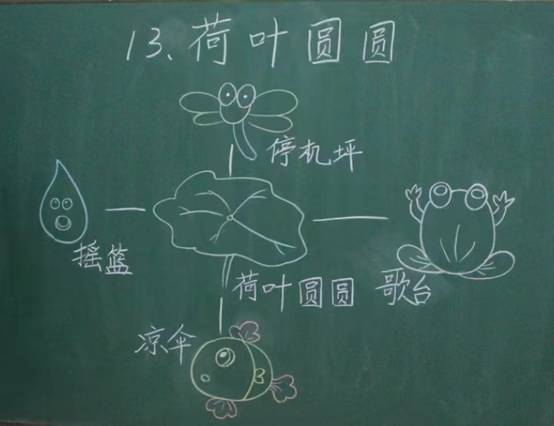 13、荷叶圆圆
停机坪
摇篮
荷叶圆圆
歌台
凉伞